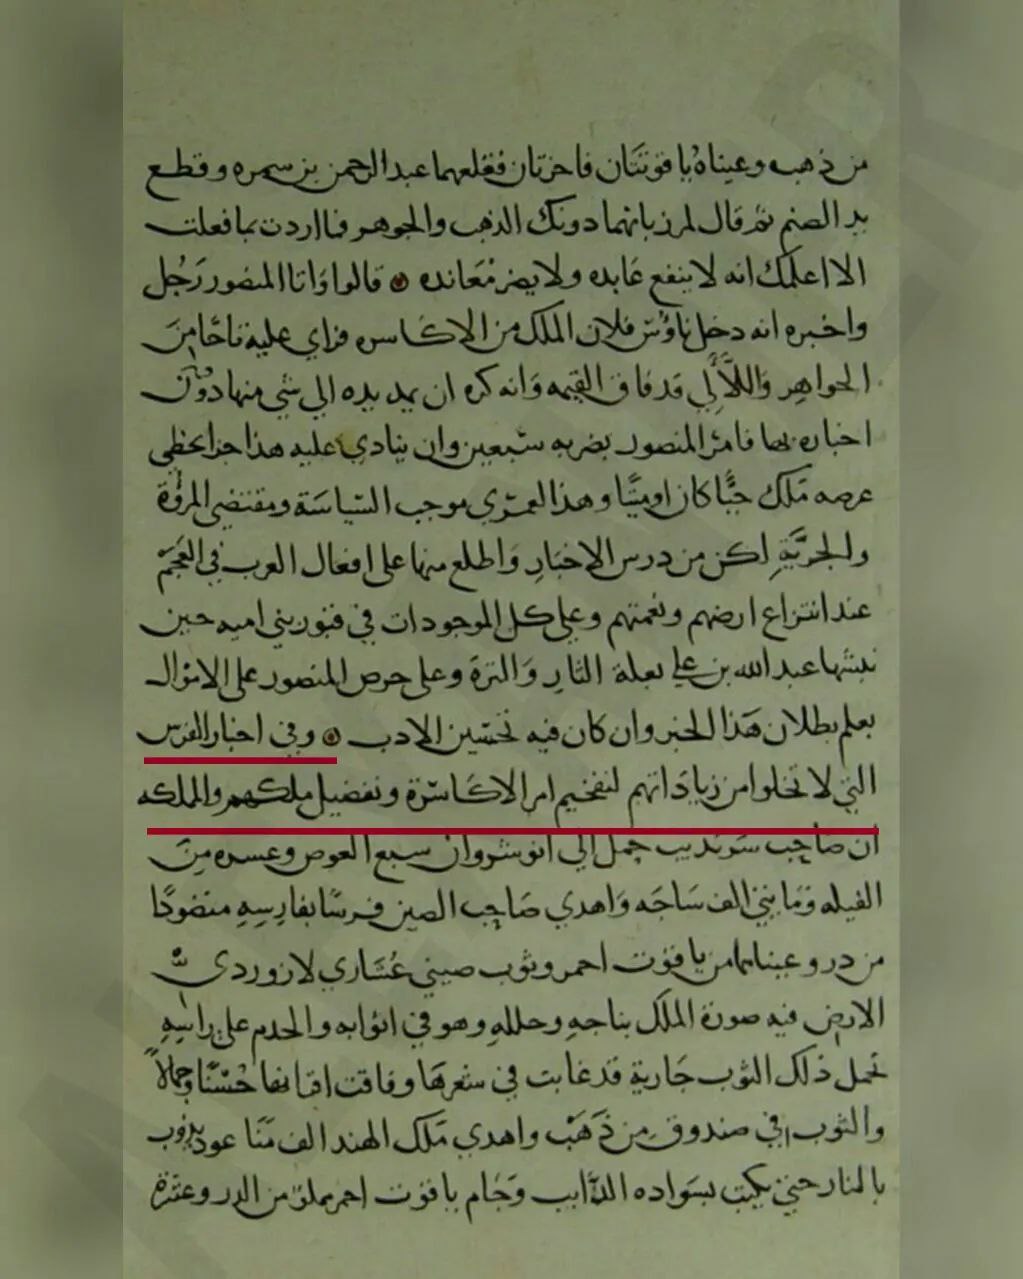 من ذهب وعيناه ياقوتتان فاخرتان فقلعهما عبد الرحمن بن سمره وقطع
يد الصنم ثم قال لمرزبانهما دونك الذهب والجوهر فما اردت بما فعلت
الا اعلمك انه لا ينفع عابده ولا يضر معانده قالوا واتا المنصور رجل
واخبره انه دخل ناوس فلان الملك من الاكاسره فراي عليه تاجا من
الجواهر واللآلي قد فاق القيمه وانه كره ان يمد يده الي شي منها دون
اخباره بها فامر المنصور بضربه سبعين وان ينادي عليه هذا جزا
ملك حيا كان او ميتا وهذا لعمري موجب السياسة ومقتضي المروة
والحرية لكن من درس الاخبار واطلع منها على افعال العرب في العجم
عند انتزاع ارضهم ونعمتهم وعلي كل الموجودات في قبور بني اميه حين
نبشها عبد الله بن علي بعلة الثار والترة وعلى حرص المنصور على الاموال
يعلم بطلان هذا الخبر وان كان فيه تحسين الادب وفي اخبار الفرس
التي لا تخلوا من زياداتهم لتفخيم امر الاكاسرة وتفضيل ملكهم والملكه
ان صاحب سرنديب حمل الي انوشروان سبع وعشره من
الفيله ومايتي الف ساجه واهدي صاحب الصين فرسا بفارسه منضودا
من در وعيناهما من ياقوت احمر وثوب صيني عشاري لازوردي
الارض فيه صورة الملك بتاجه وحلله وهو في ايوانه والخدم على راسه
تحمل ذلك الثوب جارية قد غابت في شعرها وفاقت اقرانها حسنا وجمالا
والثوب في صندوق من ذهب واهدي ملك الهند الف منا عود يذوب
بالنار حتي يكتب بسواده الكتب وجام ياقوت احمر مملو من الدر وعشرة